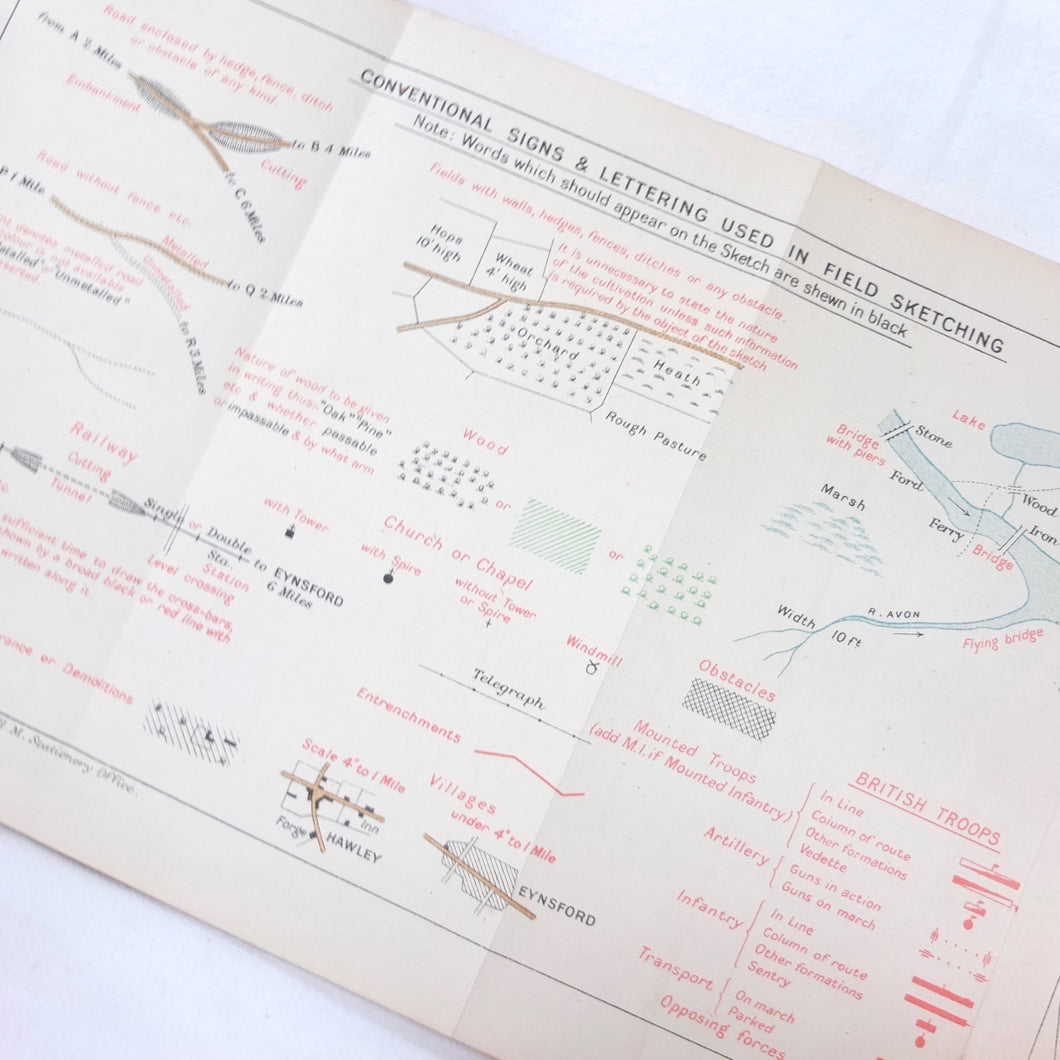 CONVENTIONAL SIGNS & LETTERING USED IN FIELD SKETCHING
Note: Words which should appear on the Sketch are shewn in black
Road enclosed by hedge, fence, ditch
or obstacle of any kind.
from A 2 Miles
Embankment
to B 4 Miles
Cutting
to C 6 Miles
Road without fence etc.
P 1 Mile
Metalled
Unmetalled
to Q 2 Miles
to R 3 Miles
denotes metalled road
colour is not available
or "Unmetalled"
Fields with walls, hedges, fences, ditches or any obstacle.
It is unnecessary to state the nature
of the cultivation unless such information
is required by the object of the sketch
Hops
10' high
Wheat
4' high
Orchard
Heath
Rough Pasture
Nature of wood to be given
in writing thus "Oak" "Pine"
etc. & whether passable
or impassable & by what arm
Wood
or
or
Railway
Cutting
Tunnel
Single or Double
Sta.
Station
to EYNSFORD
6 Miles
Level crossing
sufficient time to draw the cross-bars,
shown by a broad black or red line with
written along it.
Church or Chapel
with Tower
with Spire
without Tower
or Spire
Windmill
Telegraph
Lake
Bridge
with piers
Stone
Ford
Marsh
Ferry
Bridge
Wood
Iron
Width
10 ft
R. AVON
Flying bridge
Obstacles
or Demolitions
Entrenchments
Villages
Scale 4" to 1 Mile
Forge
Inn
HAWLEY
under 4" to 1 Mile
EYNSFORD
BRITISH TROOPS
Mounted Troops
(add M.I. if Mounted Infantry)
In Line
Column of route
Other formations
Vedette
Artillery
Guns in action
Guns on march
Infantry
In Line
Column of route
Other formations
Sentry
Transport
On march
Parked
Opposing forces
H. M. Stationery Office.